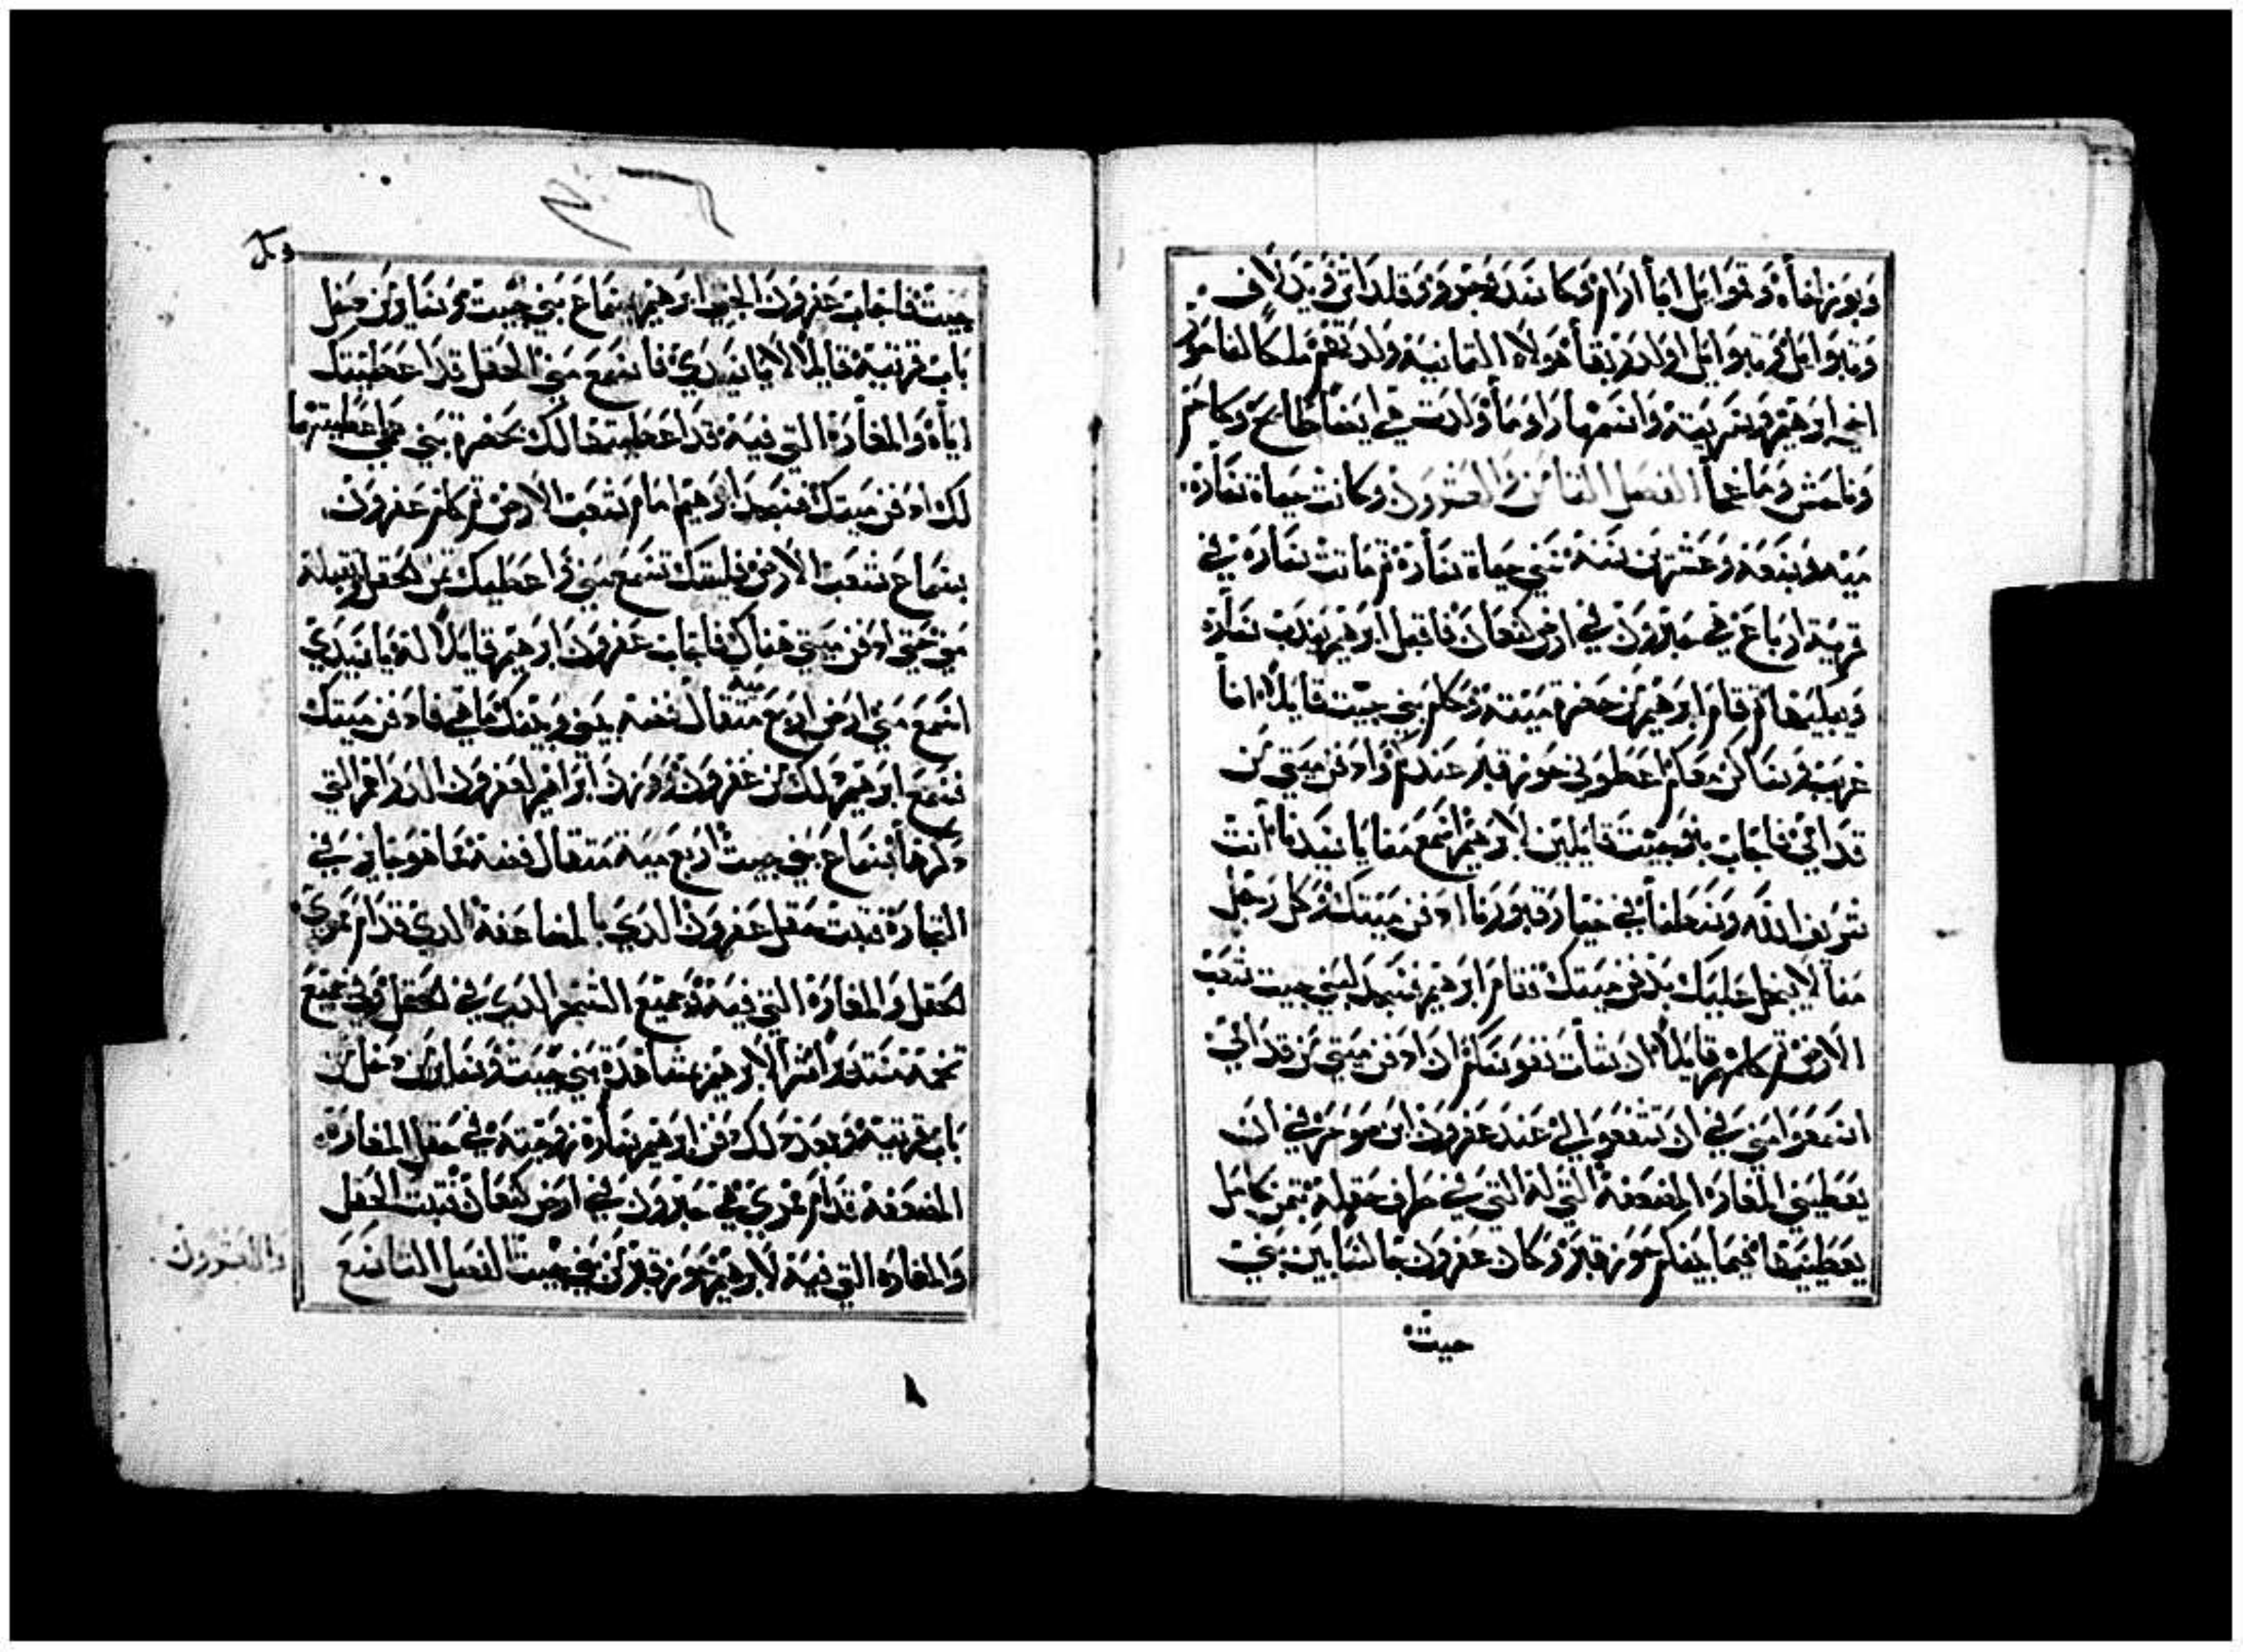 وبوزاخاه وقموايل ابا ارام وكاسد وحزو وقلداش ويدلاف
وبتوايل وبتوايل اولد ربقا هولاء الثمانية ولدتهم ملكا لناحور
اخي ابرهيم وسريته واسمها راوما وولدت هي ايضا طابح وكاحم
وتاحش وماعخا الفصل الثامن والعشرون وكانت حياة سارة
ميه وسبعة وعشرين سنة سني حياة سارة ثم ماتت سارة في
قرية ارباع هي حبرون في ارض كنعان فاقبل ابرهيم يندب سارة
ويبكيها ثم قام ابرهيم من حضرة ميته وكلم بني حيث قايلا انا
غريب وساكن معكم اعطوني حوز قبر عندكم وادفن ميتي من
قدامي فاجاب بنو حيث قايلين لابرهيم اسمع منا يا سيدنا انت
شريف الله وسطنا في خيار قبورنا ادفن ميتك وكل رجل
منا لا يبخل عليك بدفن ميتك فقام ابرهيم فسجد لبني حيث شعب
الارض ثم كلمهم قايلا ان شات نفوسكم ان ادفن ميتي من قدامي
اسمعوا مني في ان تشفعوا لي عند عفرون ابن صوحر في ان
يعطيني المغارة المضعفة التي له التي في طرف حقله بثمن كامل
يعطينيها فيما بينكم حوز قبر وكان عفرون جالسا بين بني
حيث
حيث فاجاب عفرون الحيثي ابرهيم بسماع بني حيث وساير من دخل
باب قريتيه قايلا لا يا سيدي فاسمع مني الحقل قد اعطيتك
اياه والمغارة التي فيه قد اعطيتها لك بحضرة بني عمي اعطيتها
لك ادفن ميتك فسجد ابرهيم امام شعب الارض ثم كلم عفرون
بسماع شعب الارض فليتك تسمع مني واعطيك ثمن الحقل وتقبله
مني حتى ادفن ميتي هناك فاجاب عفرون ابرهيم قايلا له يا سيدي
اسمع مني ارض اربع ميه مثقال فضه بيني وبينك ما هي فادفن ميتك
فسمع ابرهيم ذلك من عفرون ووزن ابراهيم لعفرون الدراهم التي
ذكرها بسماع بني حيث اربع ميه مثقال فضه مما هو جايز في
التجارة فثبت حقل عفرون الذي بالمضاعفة الذي قدام ممري
الحقل والمغارة التي فيه وجميع الشجر الذي في الحقل وفي جميع
تخمه مستديرا شرا لابرهيم بمشاهدة بني حيث وساير من دخل من
باب قريتيه وبعد ذلك دفن ابرهيم سارة زوجته في حقل المغارة
المضعفة قدام ممري هي حبرون في ارض كنعان فثبت الحقل
والمغاره التي فيه لابرهيم حوز قبر من بني حيث الفصل التاسع
والعشرون